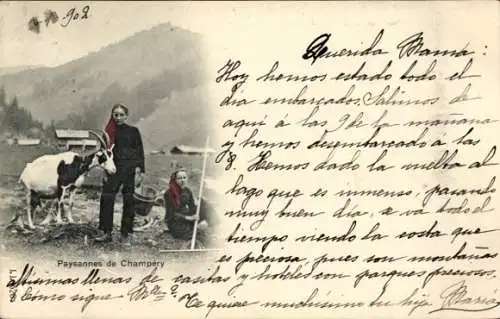 1902
Querida Mama:
Hoy hemos estado todo el
dia embarcados. Salimos de
aqui á las 9 de la mañana
y hemos desembarcado á las
8. Hemos dado la vuelta al
lago que es inmenso, pasando
muy buen dia, se va todo el
tiempo viendo la costa que
es preciosa, pues son montañas
Paysannes de Champéry
altisimas llenas de casitas y hoteles con parques preciosos.
Como sigue Te quiere muchisimo tu hija Maria